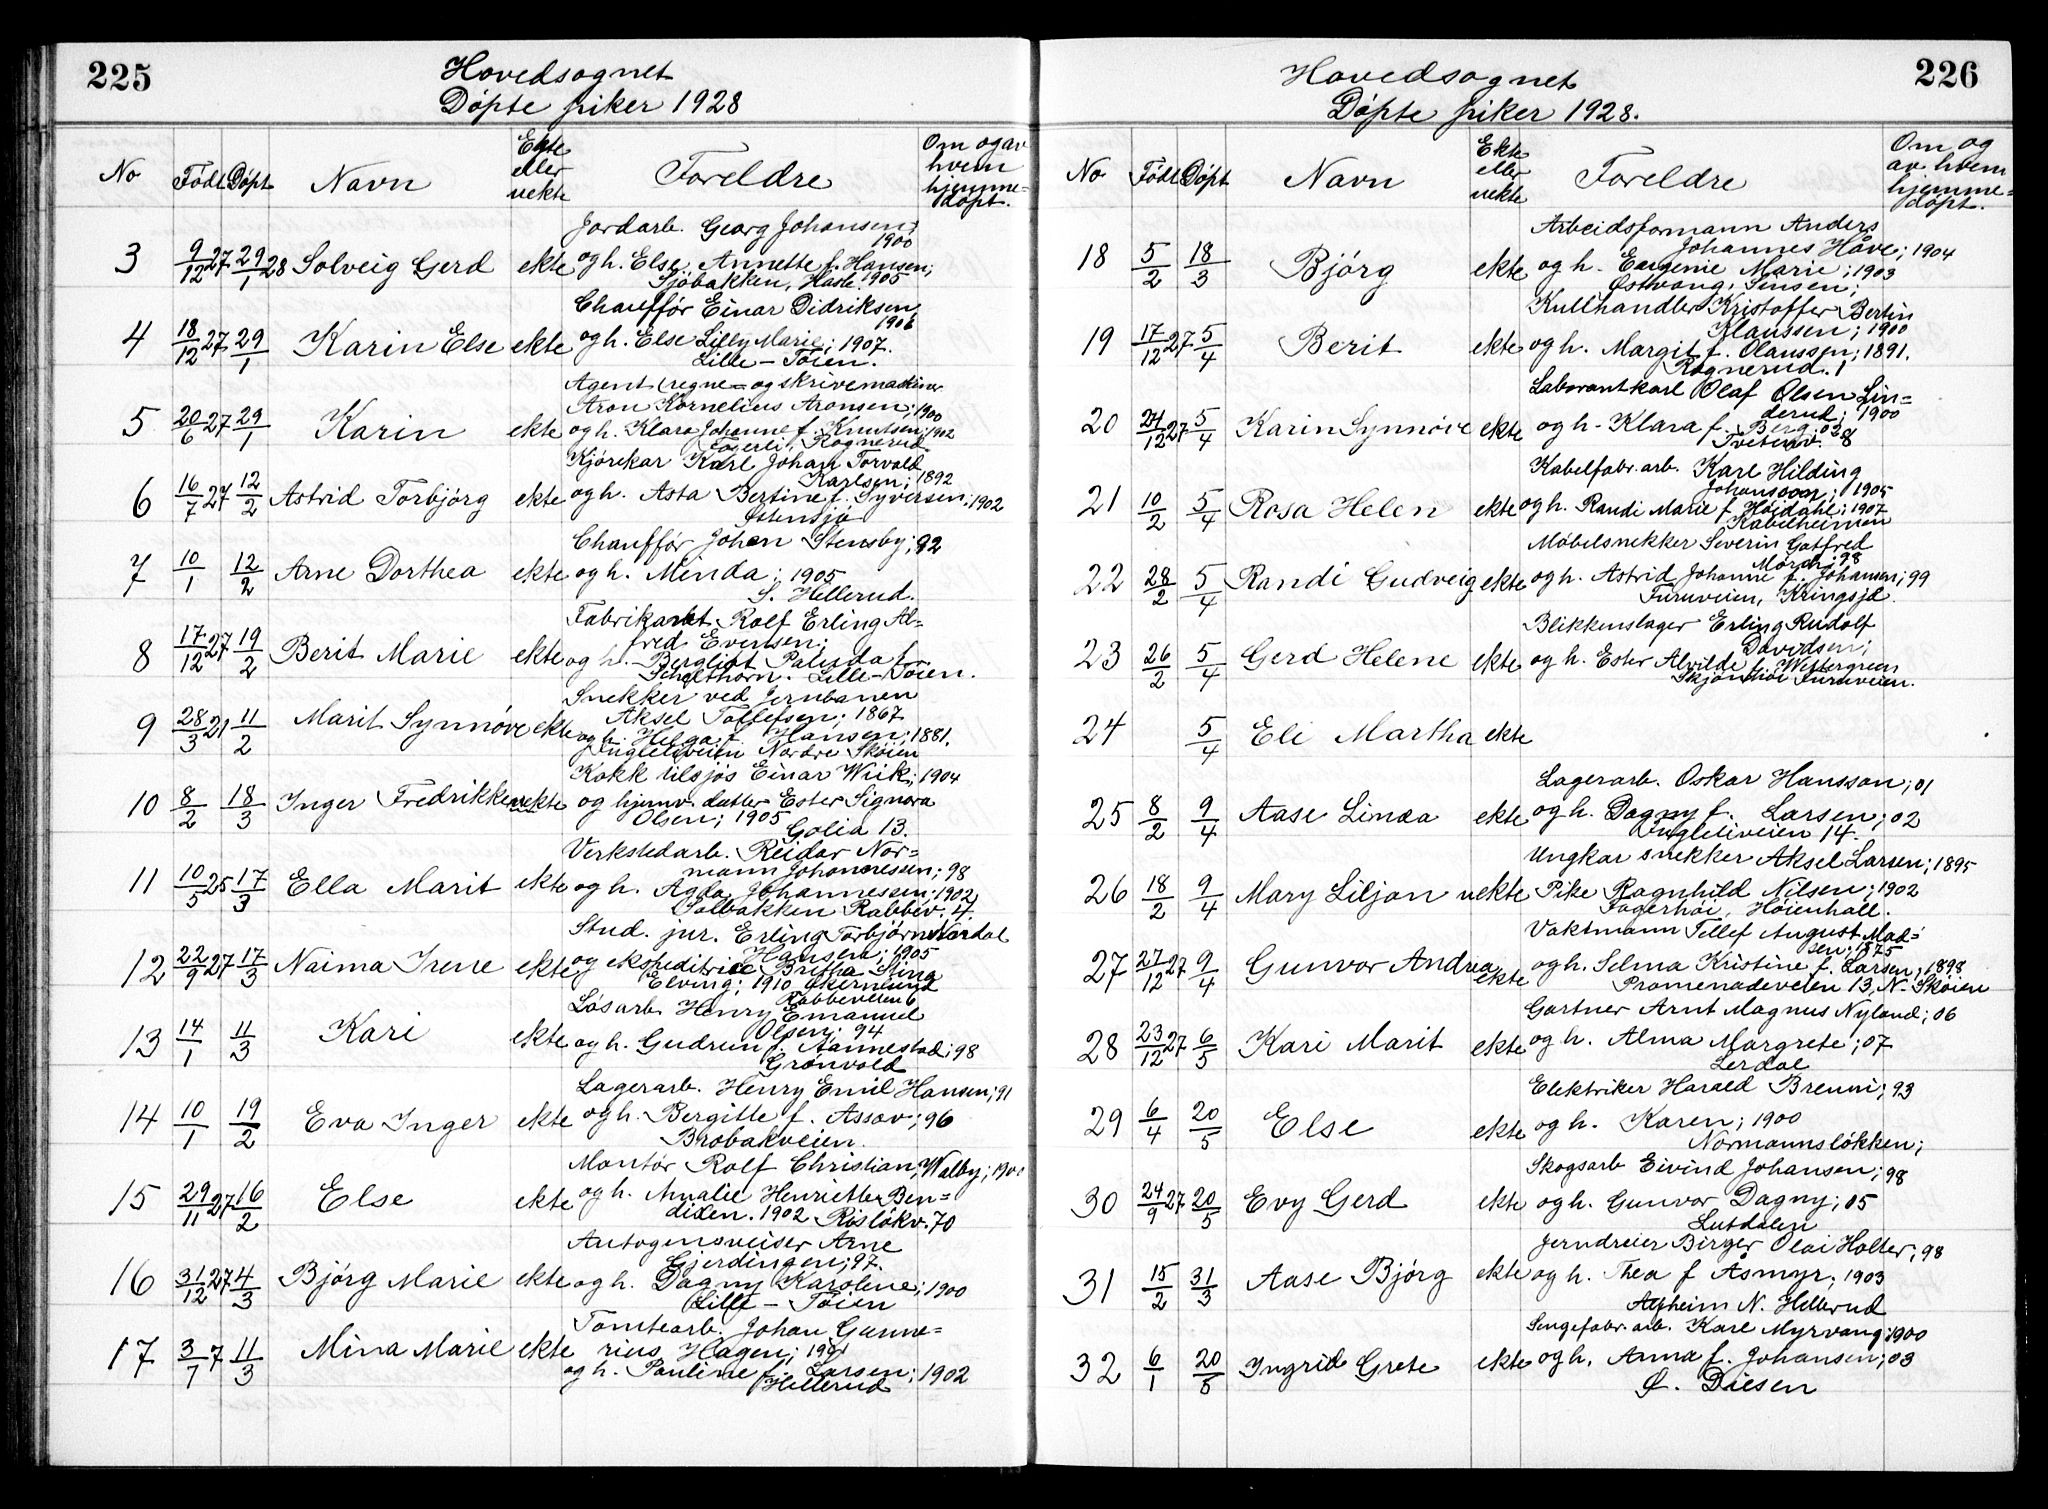 225
Hovedsognet
Døpte piker 1928
No
Født
Døpt
Navn
Ekte
eller
uekte
Foreldre
Om og av
hvem
hjemme=
døpt.
3 9/12 27 29/1 28 Solveig Gerd ekte
Jordarb. Georg Johansen;
1900
og h. Else Annette f. Hansen;
Sjøbakken, Hasle. 1905
4 18/12 27 29/1 Karin Else ekte
Chauffør Einar Didriksen
1906
og h. Else Lilly Marie; 1907.
Lille-Tøien.
5 20/6 27 29/1 Karin ekte
Agent regne- og skrivemaskiner
Aron Kornelius Aronsen; 1900
og h. Klara Johanne f. Knutsen; 1902
Rognerud
6 16/7 27 12/2 Astrid Torbjørg ekte
Kjørekar Karl Johan Torvald
Karlsen; 1892
og h. Asta Bertine f. Syversen; 1902
Østensjø
7 10/1 12/2 Arne Dorthea ekte
Chauffør Johan Stensby; 92
og h. Menda; 1905
S. Hellerud.
8 17/12 27 19/2 Berit Marie ekte
Fabrikarb. Rolf Erling Al=
fred Evensen;
og h. Bergliot Paluda f.
Lille-Tøien.
9 28/3 21 11/2 Marit Synnøve ekte
Snekker ved Jernbanen
Aksel Tollefsen; 1867
og h. Helga f. Hansen; 1881.
Ugleliveien Nordre Skøien
10 8/2 18/3 Inger Fredrikke uekte
Kokk tilsjøs Einar Wiik; 1904
og hjemv. datter Ester Signora
Olsen; 1905
Golia 13.
11 10/5 25 17/3 Ella Marit ekte
Verkstedarb. Reidar Nor=
mann Johannesen; 98
og h. Agda Johannessen; 1902
Solbakken Rabbev. 4.
12 22/9 27 17/3 Naima Irene ekte
Stud. jur. Erling Torbjørn Nordal
Hansen; 1905
og ekspeditrice Britha Stina
Elving; 1910
Rabbeveien 6
13 14/1 11/3 Kari ekte
Løsarb. Henry Emanuel
Olsen; 94
og h. Gudrun f. Aannestad; 98
Grønvold
14 10/1 19/2 Eva Inger ekte
Lagerarb. Henry Emil Hansen; 91
og h. Bergitte f. Assav; 96
Brobakveien.
15 29/11 27 16/2 Else ekte
Montør Rolf Christian Walby; 1900
og h. Amalie Henriette Ben=
dixen. 1902 Risløkv. 70
16 31/12 27 4/3 Bjørg Marie ekte
Autogensveiser Arne
Gjerdingen; 97.
og h. Dagny Karoline; 1900
Lille-Tøien
17 3/7 7 11/3 Mina Marie ekte
Tomtearb. Johan Gunne=
rius Hagen;
og h. Pauline f. Larsen; 1902
Hellerud
226
Hovedsognet
Døpte piker 1928.
No
Født
Døpt
Navn
Ekte
eller
uekte
Foreldre
Om og
av hvem
hjemme=
døpt.
18 5/2 18/3 Bjørg ekte
Arbeidsformann Anders
Johannes Håve; 1904
og h. Eugenie Marie; 1903
Østvang, Jensen;
19 17/12 27 5/4 Berit ekte
Kullhandler Kristoffer Bertin
Klaussen; 1900
og h. Margit f. Olaussen; 1891.
Rognerud. 1
20 24/12 27 5/4 Karin Synnøve ekte
Laborantkarl Olaf Olsen Lin=
derud; 1900
og h. Klara f. Berg; 02
Tvetenv. 8
21 10/2 5/4 Rosa Helen ekte
Kabelfabr.arb. Karl Hilding
Johansson; 1905
og h. Randi Marie f. Høidahl; 1907
Kabelheimen
22 28/2 5/4 Randi Gudveig ekte
Møbelsnekker Severin Gotfred
Mørch; 98
og h. Astrid Johanne f. Johansen; 99
Furuveien, Kringsjå.
23 26/2 5/4 Gerd Helene ekte
Blikkenslager Erling Rudolf
Davidsen;
og h. Ester Alvilde f. Wettergreen
Skjønhøi Furuveien.
24 5/4 Eli Martha ekte
25 8/2 9/4 Aase Linda ekte
Lagerarb. Oskar Hansson; 01
og h. Dagny f. Larsen; 02
Ugleliveien 14.
26 18/2 9/4 Mary Liljan uekte
Ungkar snekker Aksel Larsen; 1895
Pike Ragnhild Nilsen; 1902
Fagerhøi, Høienhall.
27 27/12 27 9/4 Gunvor Andrea ekte
Vaktmann Tellef August Mad=
sen; 1875
og h. Selma Kristine f. Larsen; 1898
Promenadeveien 13, N. Skøien
28 23/12 27 6/5 Kari Marit ekte
Gartner Arnt Magnus Nyland; 06
og h. Alma Margrete; 07
Lerdal
29 6/4 20/5 Else ekte
Elektriker Harald Brenni; 93
og h. Karen; 1900
Normannsløkken;
30 24/9 27 20/5 Evy Gerd ekte
Skogsarb Eivind Johansen; 98
og h. Gunvor Dagny; 05
Lutdalen
31 15/2 31/3 Aase Bjørg ekte
Jerndreier Birger Olai Holter; 98
og h. Thea f Åsmyr; 1903
Alfheim N. Hellerud
32 6/1 20/5 Ingrid Grete ekte
Sengefabr.arb. Karl Myrvang; 1900
og h. Anna f. Johansen; 03
Ø. Diesen